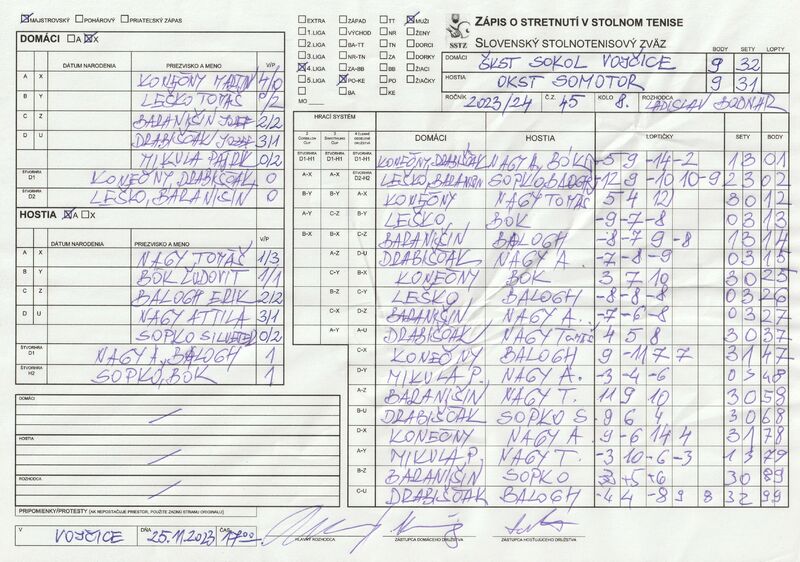 ☒ MAJSTROVSKÝ ☐ POHÁROVÝ ☐ PRIATEĽSKÝ ZÁPAS
DOMÁCI ☐ A ☒ X
DÁTUM NARODENIA PRIEZVISKO A MENO V/P
A X KONEČNÝ MARTIN 4/0
B Y LEŠKO TOMÁŠ 0/2
C Z BARANIŠIN JOZEF 2/2
D U DRABIŠČAK JOZEF 3/1
MIKULA PATRK 0/2
ŠTVORHRA D1 KONEČNÝ, DRABIŠČAK 0
ŠTVORHRA D2 LEŠKO, BARANIŠIN 0
HOSTIA ☒ A ☐ X
DÁTUM NARODENIA PRIEZVISKO A MENO V/P
A X NAGY TOMÁŠ 1/3
B Y BÓK ĽUDOVIT 1/1
C Z BALOGH ERIK 2/2
D U NAGY ATTILA 3/1
SOPKO SILVESTER 0/2
ŠTVORHRA D1 NAGY A., BALOGH 1
ŠTVORHRA H2 SOPKO, BOK 1
DOMÁCI
HOSTIA
ROZHODCA
PRIPOMIENKY/PROTESTY (AK NEPOSTAČUJE PRIESTOR, POUŽITE ZADNÚ STRANU ORIGINÁLU)
V VOJČICE DŇA 25.11.2023 ČAS 17:00
HLAVNÝ ROZHODCA ZÁSTUPCA DOMÁCEHO DRUŽSTVA ZÁSTUPCA HOSŤUJÚCEHO DRUŽSTVA
☐ EXTRA ☐ ZÁPAD ☐ TT ☒ MUŽI
☐ 1.LIGA ☐ VÝCHOD ☐ NR ☐ ŽENY
☐ 2.LIGA ☐ BA-TT ☐ TN ☐ DORCI
☐ 3.LIGA ☐ NR-TN ☐ ZA ☐ DORKY
☒ 4.LIGA ☐ ZA-BB ☐ BB ☐ ŽIACI
☐ 5.LIGA ☒ PO-KE ☐ PO ☐ ŽIAČKY
☐ BA ☐ KE
MO
SSTZ
ZÁPIS O STRETNUTÍ V STOLNOM TENISE
SLOVENSKÝ STOLNOTENISOVÝ ZVÄZ
BODY SETY LOPTY
DOMÁCI ŠKST SOKOL VOJČICE 9 32
HOSTIA OKST SOMOTOR 9 31
ROČNÍK 2023/24 Č.Z. 45 KOLO 8. ROZHODCA LADISLAV BODNAR
HRACÍ SYSTÉM
DOMÁCI HOSTIA LOPTIČKY SETY BODY
ŠTVORHRA D1-H1 ŠTVORHRA D1-H1 ŠTVORHRA D1-H1 KONEČNÝ, DRABIŠČAK NAGY A, BÓK -5 9 -14 -2 1 3 0 1
A-X A-X ŠTVORHRA D2-H2 LEŠKO, BARANIŠIN SOPKO, BALOGH -12 9 -10 10 -9 2 3 0 2
B-Y B-Y A-X KONEČNÝ NAGY TOMÁŠ 5 4 12 3 0 1 2
A-Y C-Z B-Y LEŠKO BOK -9 -7 -8 0 3 1 3
B-X B-X C-Z BARANIŠIN BALOGH -8 -7 9 -8 1 3 1 4
A-Z D-U DRABIŠČAK NAGY A. -7 -8 -9 0 3 1 5
C-Y B-X KONEČNÝ BOK 3 7 10 3 0 2 5
B-Z C-Y LEŠKO BALOGH -8 -8 -8 0 3 2 6
C-X D-Z BARANIŠIN NAGY A. -7 -6 -8 0 3 2 7
A-Y A-U DRABIŠČAK NAGY Tomáš 4 5 8 3 0 3 7
C-X KONEČNÝ BALOGH 9 -11 7 7 3 1 4 7
D-Y MIKULA P. NAGY A. -3 -4 -6 0 3 4 8
A-Z BARANIŠIN NAGY T. 11 9 10 3 0 5 8
B-U DRABIŠČAK SOPKO S 9 6 4 3 0 6 8
D-X KONEČNÝ NAGY A 9 -6 14 4 3 1 7 8
A-Y MIKULA P. NAGY T. -3 10 -6 -3 1 3 7 9
B-Z BARANIŠIN SOPKO 5 6 3 0 8 9
C-U DRABIŠČAK BALOGH -4 4 -8 9 8 3 2 9 9